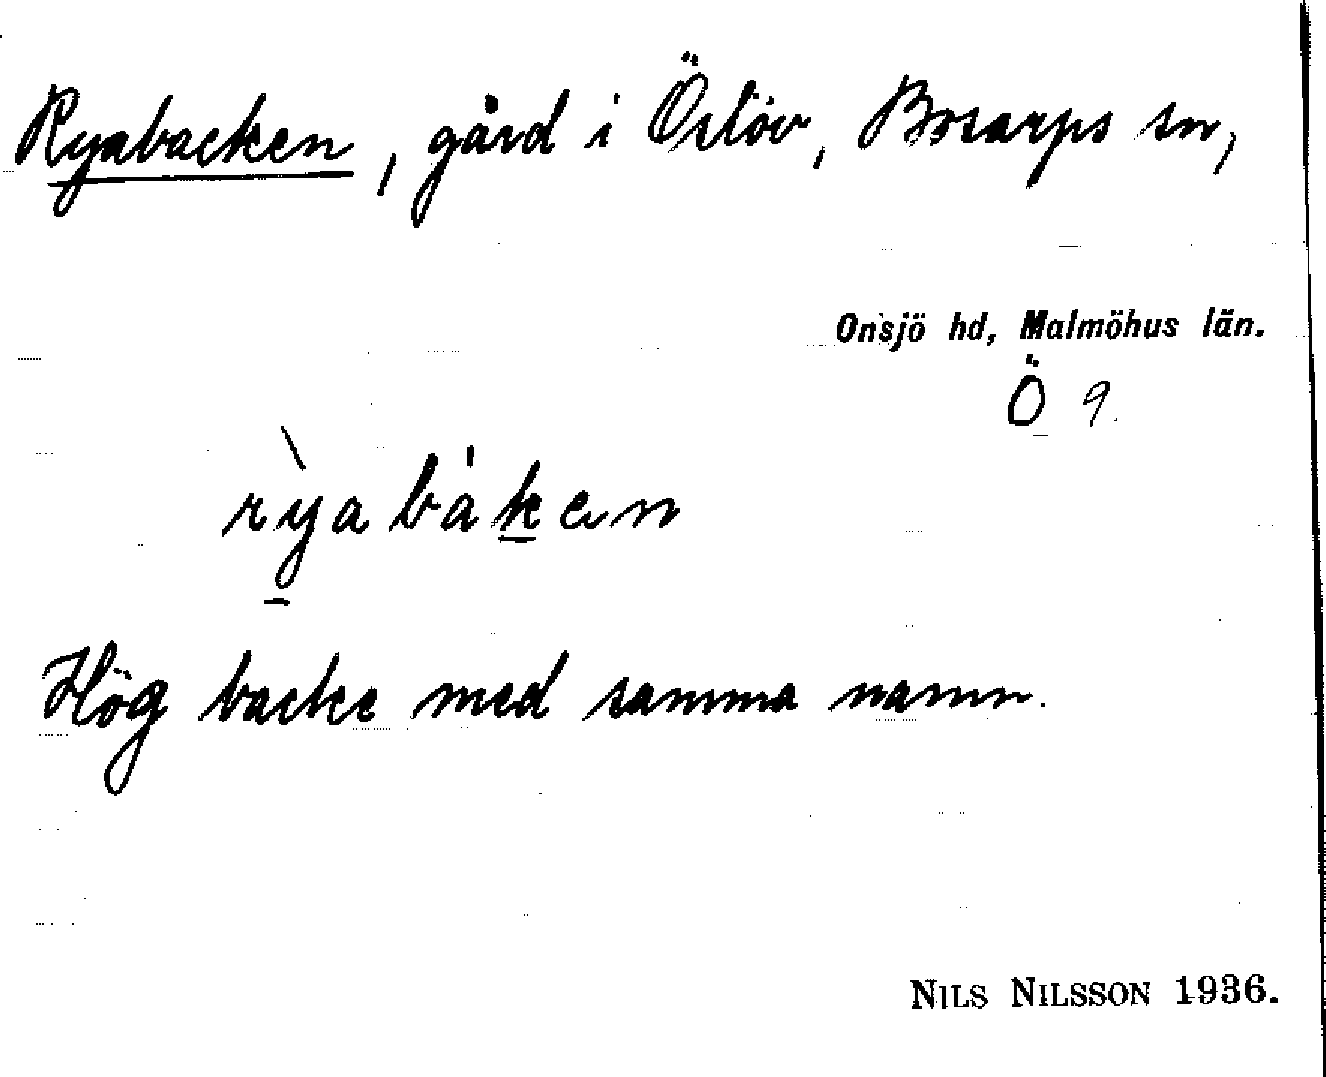 Ryabacken, gård i Öslöv, Bosarps sn,
Onsjö hd, Malmöhus län.
Ö 9.
rỳabáken
Hög backe med samma namn.
NILS NILSSON 1936.